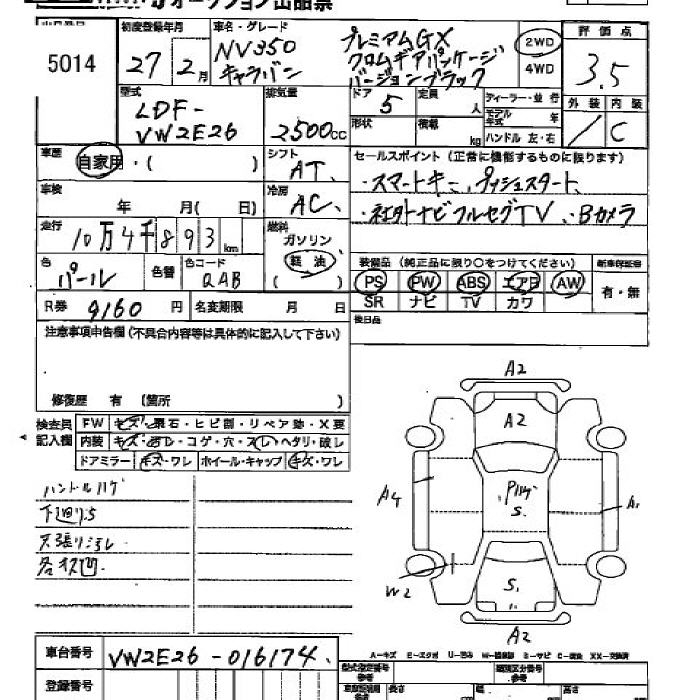 オークション出品票
出品番号 初度登録年月 車名・グレード 評価点
5014 27年 2月 NV350 キャラバン
プレミアムGX
クロムギアパッケージ
バージョンブラック
2WD
4WD
3.5
型式 排気量 ドア 定員 ディーラー・並行 外装 内装
LDF-
VW2E26
2500cc
5
人
モデル年式 年
形状 積載 kg ハンドル 左・右
C
車歴 自家用・( )
シフト AT
セールスポイント (正常に機能するものに限ります)
・スマートキー、プッシュスタート
・社外ナビフルセグTV、Bカメラ
車検 年 月( 日)
冷房 AC
走行 10万4千893km
燃料 ガソリン
軽油
( )
色 パール 色替 色コード QAB
装備品 (純正品に限り○をつけてください) 新車保証書
PS PW ABS エアB AW 有・無
SR ナビ TV カワ
R券 9160円 名変期限 月 日
後日品
注意事項申告欄 (不具合内容等は具体的に記入して下さい)
修復歴 有 (箇所 )
検査員
記入欄
FW キズ・飛石・ヒビ割・リペア跡・X要
内装 キズ・汚レ・コゲ・穴・スレ・ヘタリ・破レ
ドアミラー キズ・ワレ ホイール・キャップ キズ・ワレ
ハンドルハゲ
下廻りS
天張りヨゴレ
各状凹
A2
A2
A4
S.
A1
W2
S.
A2
A-キズ E-エクボ U-凹み W-補修跡 S-サビ C-腐食 XX-交換済
車台番号 VW2E26-016174
登録番号
型式指定番号 参考 類別区分番号 参考
長さ 幅 高さ